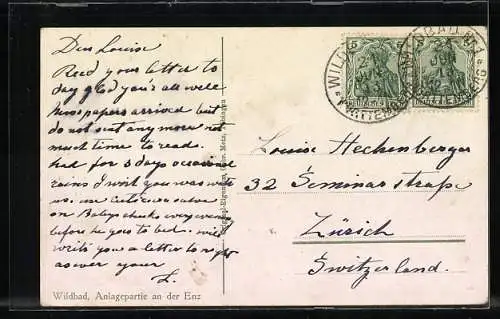 Dear Louise
Recd your letter to
day glad you's all well
Newspapers arrived but
do not out any more not
much time to read.
had for 3 days occasional
rains I wish you was with
us. 
on Babys cheeks every evening
before he goes to bed. will
write you a letter to night
answer your
L.
Wildbad, Anlagepartie an der Enz
Louise Hechenberger
32 Seminarstrasse
Zürich
Switzerland.
5
5
WILDBAD
WÜRTTEMBERG